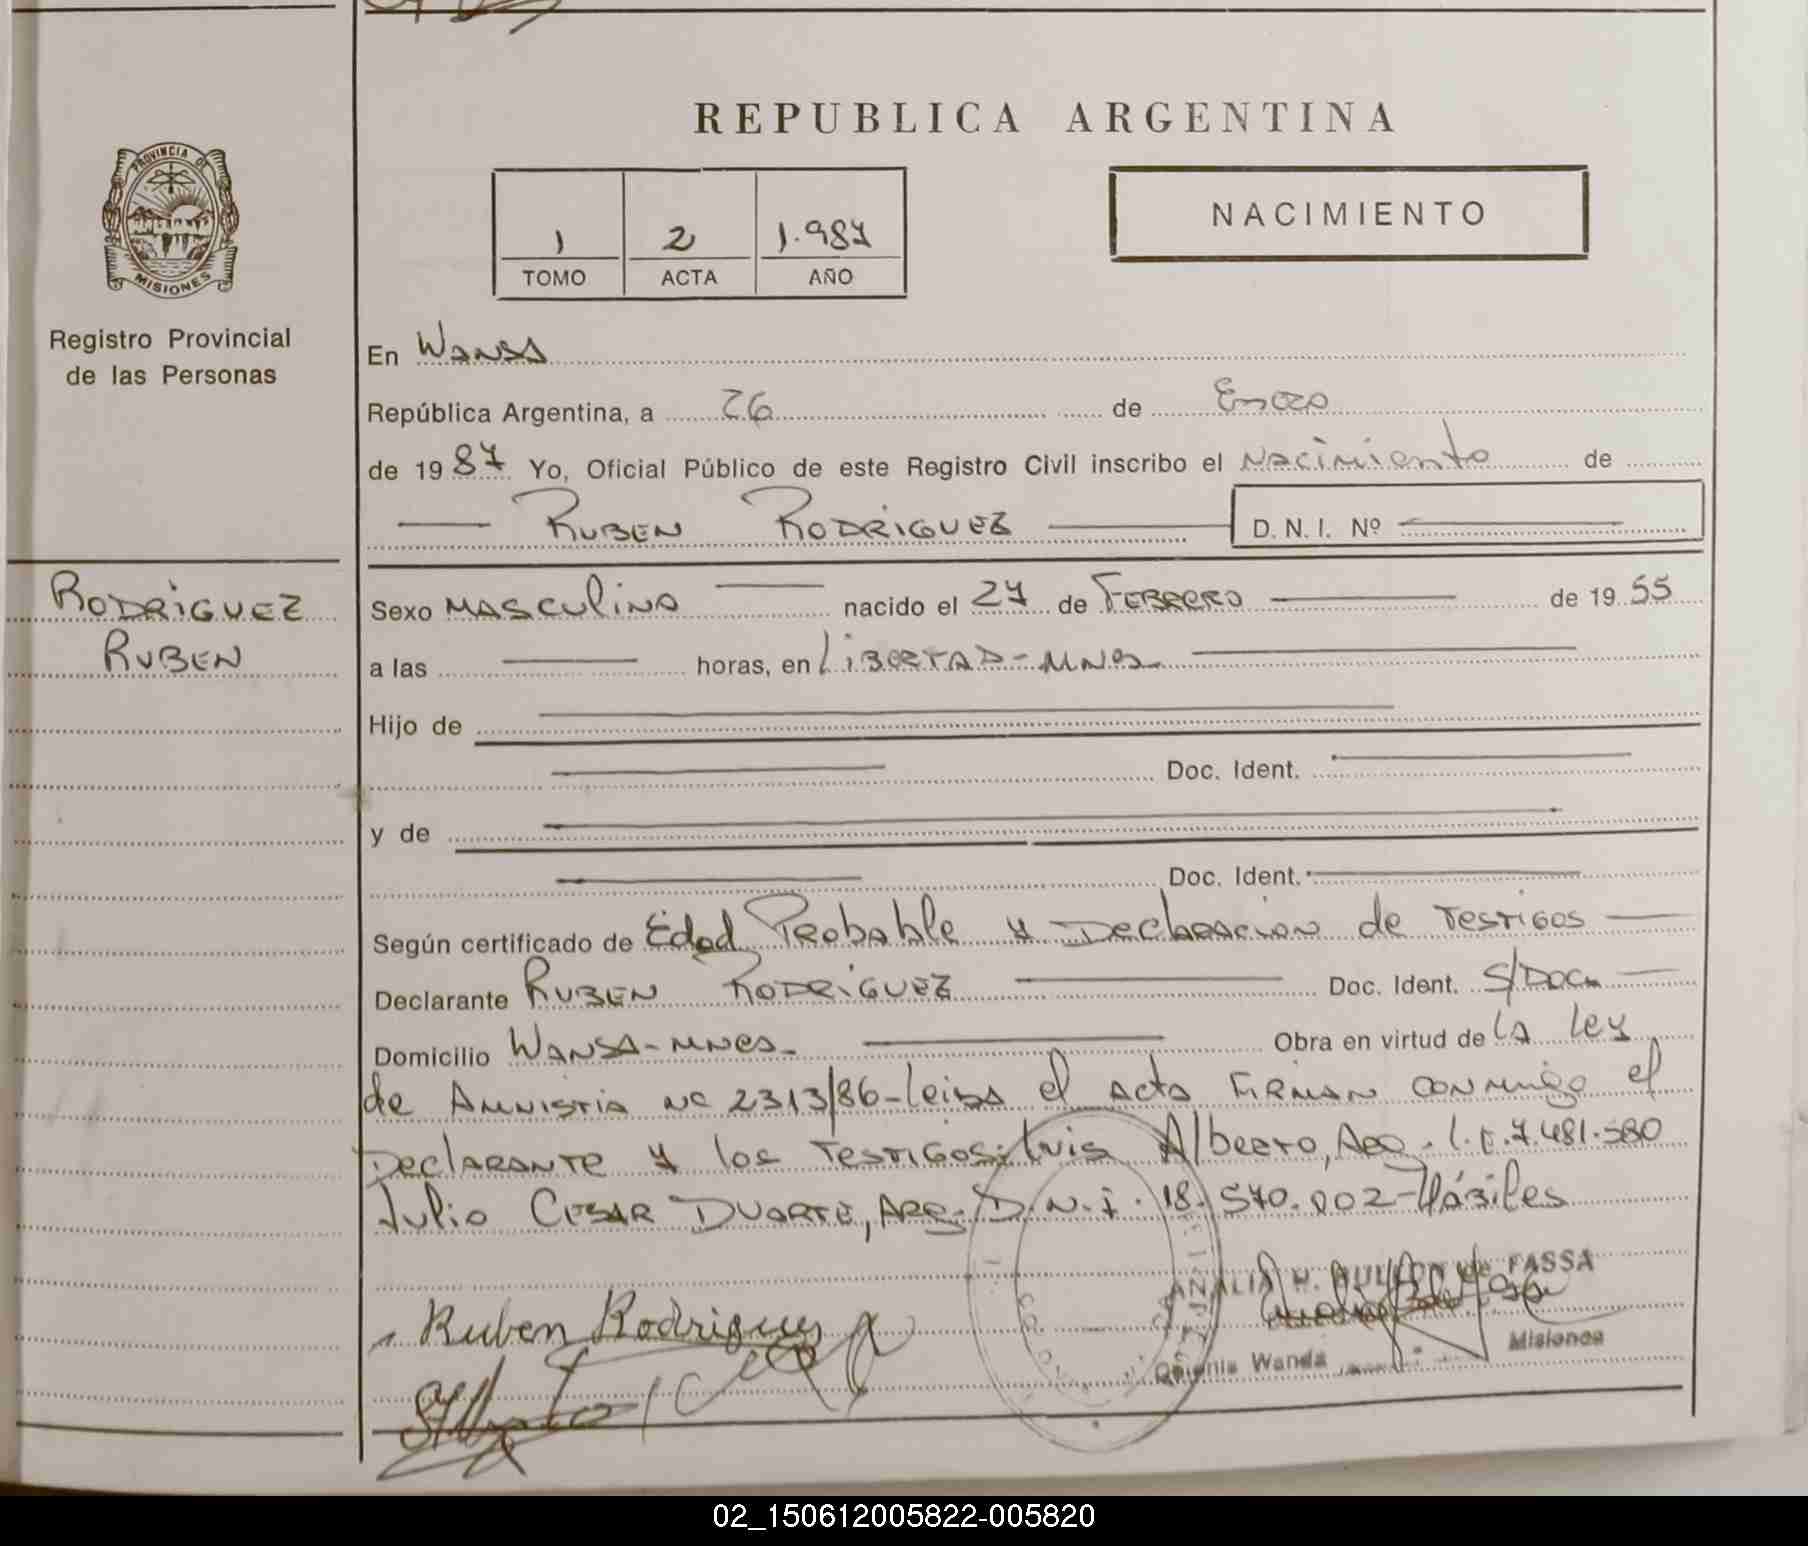 REPUBLICA ARGENTINA
PROVINCIA DE
MISIONES
Registro Provincial
de las Personas
1 2 1.987
TOMO ACTA AÑO
NACIMIENTO
En WANDA
República Argentina, a 26 de Enero
de 1987 Yo, Oficial Público de este Registro Civil inscribo el Nacimiento de
RUBEN RODRIGUEZ D. N. I. Nº
RODRIGUEZ
RUBEN
Sexo MASCULINO nacido el 27 de FEBRERO de 1955
a las horas, en LIBERTAD-MNES
Hijo de
Doc. Ident.
y de
Doc. Ident.
Según certificado de Edad Probable y Declaracion de Testigos
Declarante RUBEN RODRIGUEZ Doc. Ident. S/Doc.
Domicilio WANDA-MNES- Obra en virtud de la ley
de Amnistia nº 2313/86-leida el acta FIRMAN conmigo el
Declarante y los Testigos: Luis Alberto, Arg. L.E. 7.481.580
Julio CESAR DUARTE, ARG. D.N.I. 18.570.002-Hábiles
ANALIA H. de FASSA
Ruben Rodriguez
Misiones
Colonia Wanda
02_150612005822-005820